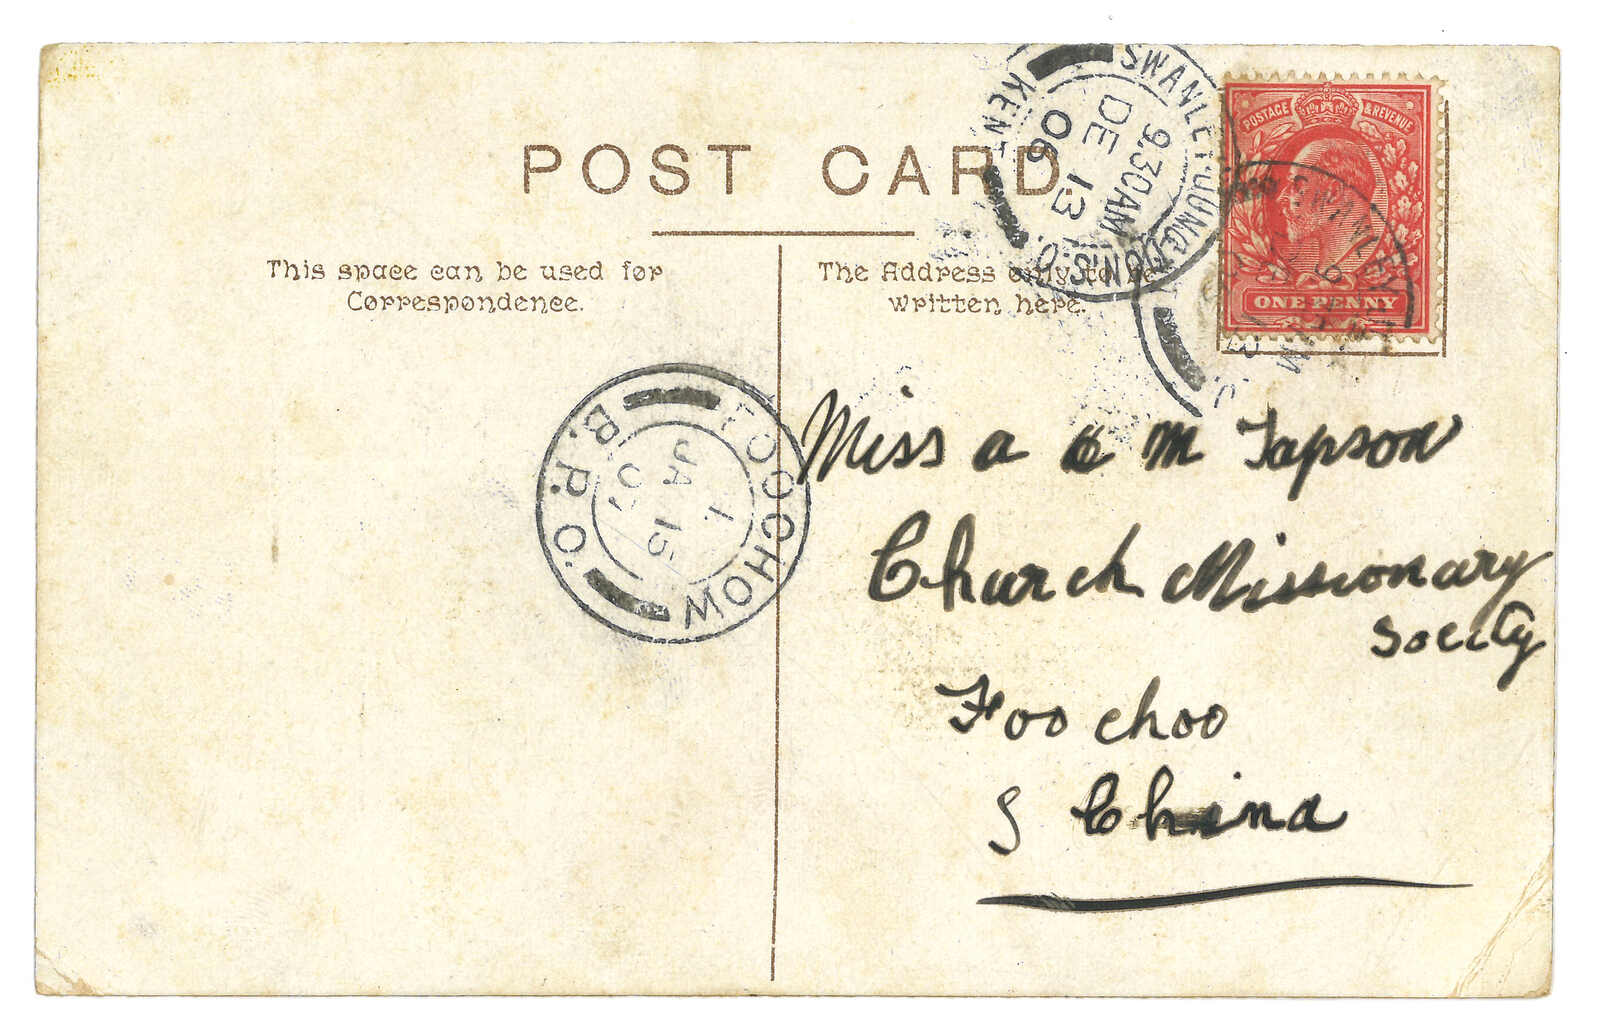 POST CARD.
This space can be used for
Correspondence.
The Address only to be
written here.
SWANLEY JUNCTION S.O.
KENT
9.30AM
DE 13
06
POSTAGE & REVENUE
ONE PENNY
SWANLEY
FOOCHOW
B.P.O.
1
JA 15
07
Miss a & M Tapson
Church Missionary
Society
Foo choo
S China